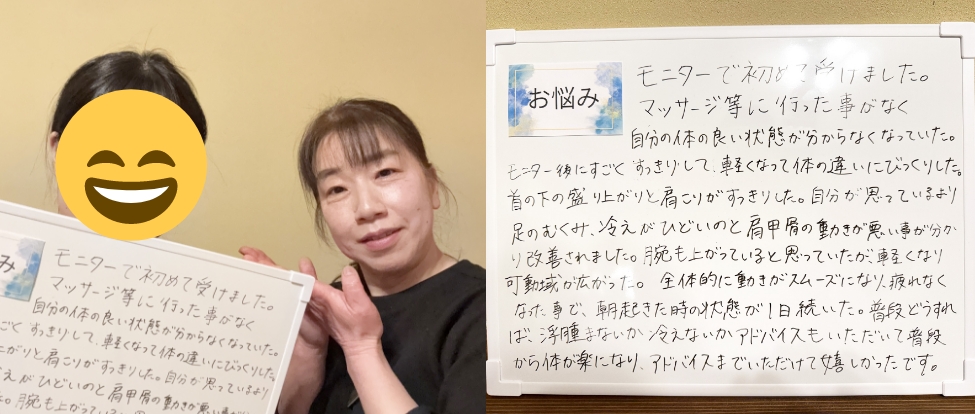 み
モニターで初めて受けました。
マッサージ等に行った事がなく
自分の体の良い状態が分からなくなっていた。
ごと すっきりして、軽くなって体の違いにびっくりした。
上がりと肩こりがすっきりした。自分が思っているより
えがひどいのと肩甲骨の動きが悪い事が
お悩み
モニターで初めて受けました。
マッサージ等に行った事がなく
自分の体の良い状態が分からなくなっていた。
モニター後にすごく すっきりして、軽くなって体の違いにびっくりした。
首の下の盛り上がりと肩こりがすっきりした。自分が思っているより
足のむくみ、冷えがひどいのと肩甲骨の動きが悪い事が分か
り改善されました。腕も上がっていると思っていたが、軽くなり
可動域が広がった。 全体的に動きがスムーズになり、疲れなく
なった事で、朝起きた時の状態が1日続いた。普段どうすれ
ば、浮腫まないか 冷えないかアドバイスもいただいて普段
から体が楽になり、アドバイスまでいただけて嬉しかったです。